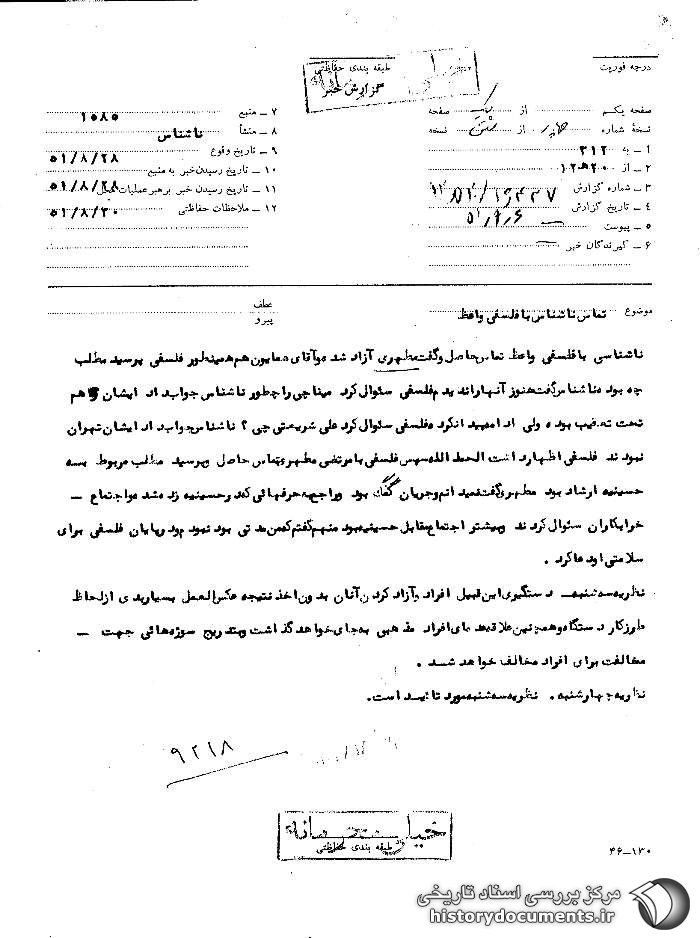 درجه فوریت
طبقه بندی حفاظتی
گزارش خبر
صفحه یکم از یک صفحه
نسخهٔ شماره از نسخه
۱ – به ۳۱۲
۲ – از ۲۰ ه ۱۲
۳ – شماره گزارش
۴ – تاریخ گزارش
۵ – پیوست
۶ – گیرندگان خبر
۷ – منبع ۱۰۸۵
۸ – منشأ ناشناس
۹ – تاریخ وقوع ۵۱/۸/۲۸
۱۰ – تاریخ رسیدن خبر به منبع
۱۱ – تاریخ رسیدن خبر برهبر عملیات محل ۵۱/۸/۲۸
۱۲ – ملاحظات حفاظتی ۵۱/۸/۳۰
موضوع تماس ناشناس با فلسفی واعظ
عطف
پیرو
ناشناسی با فلسفی واعظ تماس حاصل و گفت مطهری آزاد شد و آقای همایون هم همینطور فلسفی پرسید مطلب
چه بود ناشناس گفت هنوز آنها را ندیدم فلسفی سئوال کرد میناچی را چطور ناشناس جواب داد ایشان هم
تحت تعقیب بوده ولی اد امه پیدا نکرد فلسفی سئوال کرد علی شریعتی چی ؟ ناشناس جواب داد ایشان تهران
نبودند فلسفی اظهار داشت الحمد الله سپس فلسفی با مرتضی مطهری تماس حاصل و پرسید مطلب مربوط بسه
حسینیه ارشاد بود مطهری گفت نمیدانم و جریان گنگ بود و راجع به حرفهائی که در حسینیه زده شد و اجتماع –
خرابکاران سئوال کردند و بیشتر اجتماع مقابل حسینیه بود منهم گفتم که من مدتی بود نبودم در پایان فلسفی برای
سلامتی او دعا کرد .
نظریه سه شنبه – دستگیری این قبیل افراد و آزاد کردن آنان بدون اخذ نتیجه عکس العمل بسیار بدی از لحاظ
طرز کار دستگاه و همچنین علاقه‌مندهای افراد مذهبی به جای خواهد گذاشت و بتدریج سوژه هائی جهت –
مخالفت برای افراد مخالف خواهد شد .
نظریه چهارشنبه . نظریه سه شنبه مورد تائید است .
۹۲۱۸
خیلی محرمانه
طبقه بندی حفاظتی
۴۶–۱۳۰
مرکز بررسی اسناد تاریخی
historydocuments.ir